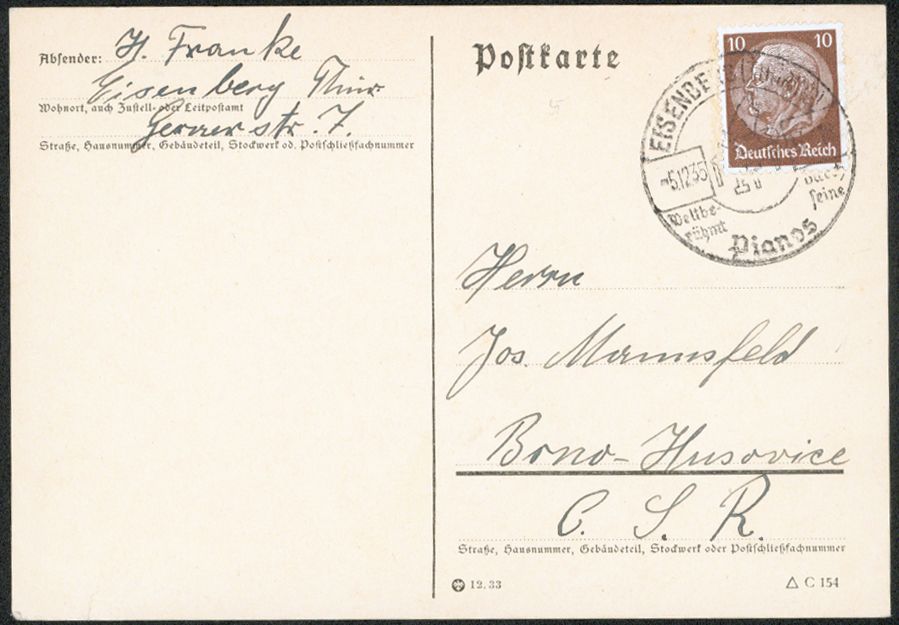 Absender: H. Franke
Eisenberg Thür.
Wohnort, auch Zustell- oder Leitpostamt
Gerauerstr. 7.
Straße, Hausnummer, Gebäudeteil, Stockwerk od. Postschließfachnummer
Postkarte
10 10
Deutsches Reich
EISENBERG (THÜR)
-5.12.35
Weltbe-
rühmt
durch
seine
Pianos
Herrn
Jos. Mannsfeld
Brno-Husovice
C. S. R.
Straße, Hausnummer, Gebäudeteil, Stockwerk oder Postschließfachnummer
12.33
C 154